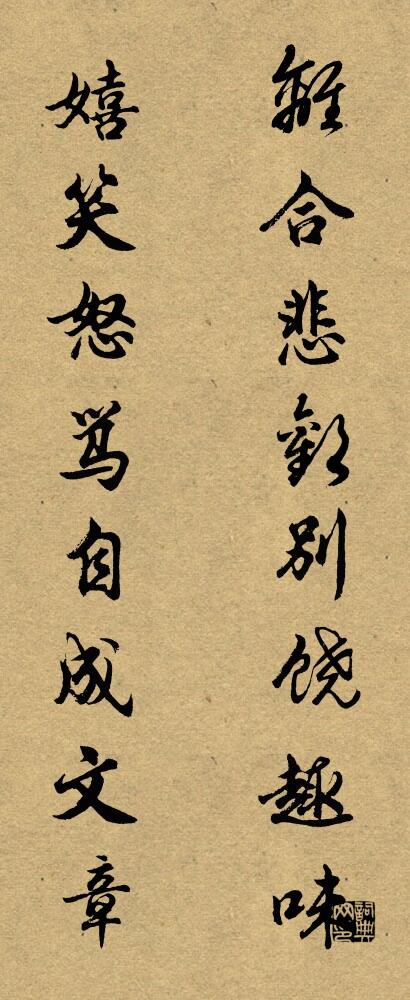 離合悲歡别饒趣味
嬉笑怒骂自成文章
詞典网印